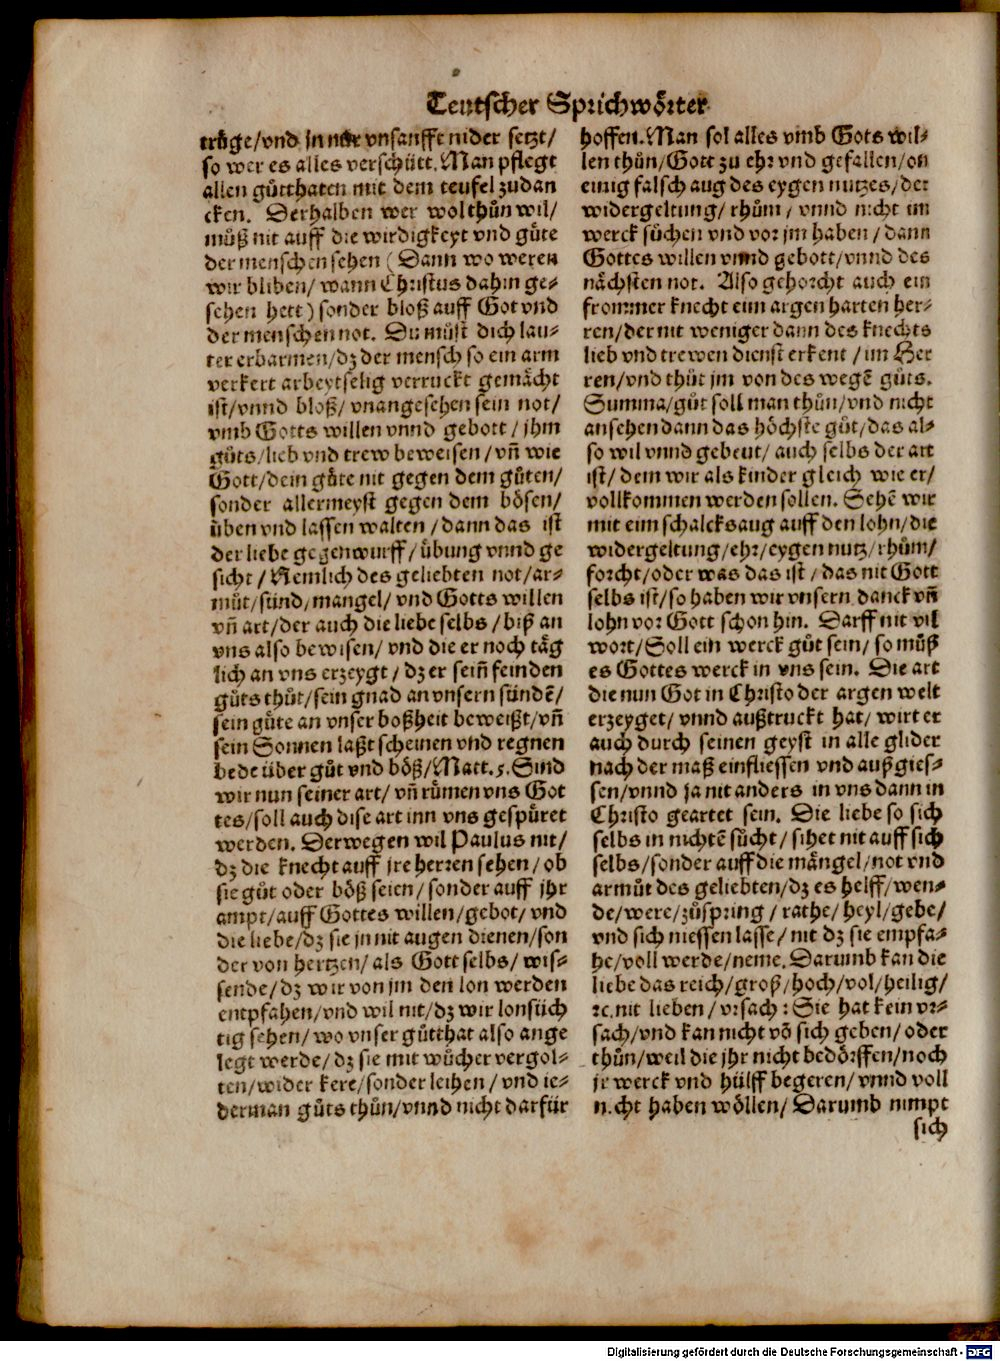 Teutscher Sprichwörter
tröge/vnd jn nur vnsanfft nider setzt/
so wer es alles verschütt. Man pflegt
allen gůtthaten mit dem teufel zudan
cken. Derhalben wer wol thůn wil/
můß nit auff die wirdigkeyt vnd güte
der menschen sehen (Dann wo weren
wir bliben/ wann Christus dahin ge⸗
sehen hett) sonder bloß auff Got vnd
der menschen not. Du můst dich lau⸗
ter erbarmen/dz der mensch so ein arm
verkert arbeytselig verruckt gemächt
ist/vnnd bloß/ vnangesehen sein not/
vmb Gotts willen vnnd gebott/ jhm
gůts/lieb vnd trew beweisen/ vñ wie
Gott/dein güte nit gegen dem gůten/
sonder allermeyst gegen dem bösen/
üben vnd lassen walten/dann das ist
der liebe gegenwurff/übung vnnd ge
sicht/Nemlich des geliebten not/ar⸗
můt/sünd/mangel/ vnd Gotts willen
vñ art/der auch die liebe selbs/biß an
vns also bewisen/ vnd die er noch täg
lich an vns erzeygt/ dz er seiñ feinden
gůts thůt/sein gnad an vnsern sündẽ/
sein güte an vnser boßheit beweißt/vñ
sein Sonnen laßt scheinen vnd regnen
bede über gůt vnd böß/Matt.5. Sind
wir nun seiner art/ vñ rümen vns Got
tes/soll auch dise art inn vns gespüret
werden. Derwegen wil Paulus nit/
dz die knecht auff jre herren sehen/ ob
sie gůt oder böß seien/sonder auff jhr
ampt/auff Gottes willen/gebot/ vnd
die liebe/dz sie jn nit augen dienen/son
der von hertzen/ als Gott selbs/ wis⸗
sende/dz wir von jm den lon werden
entpfahen/vnd wil nit/dz wir lonsüch
tig sehen/ wo vnser gůtthat also ange
legt werde/ dz sie mit wůcher vergol⸗
ten/wider kere/sonder leihen/ vnd ie⸗
derman gůts thůn/vnnd nicht darfür
hoffen. Man sol alles vmb Gots wil⸗
len thůn/Gott zu ehr vnd gefallen/on
einig falsch aug des eygen nutzes/der
widergeltung/ rhům/ vnnd nicht im
werck sůchen vnd vor jm haben/dann
Gottes willen vnnd gebott/vnnd des
nächsten not. Also gehorcht auch ein
frommer knecht eim argen harten her⸗
ren/der nit weniger dann des knechts
lieb vnd trewen dienst erkent/im Her
ren/vnd thůt jm von des wegẽ gůts.
Summa/gůt soll man thůn/vnd nicht
ansehen dann das höchste gůt/das al⸗
so wil vnnd gebeut/ auch selbs der art
ist/dem wir als kinder gleich wie er/
vollkommen werden sollen. Sehẽ wir
mit eim schalcksaug auff den lohn/die
widergeltung/ehr/eygen nutz/rhům/
forcht/oder was das ist/das nit Gott
selbs ist/so haben wir vnsern danck vñ
lohn vor Gott schon hin. Darff nit vil
wort/Soll ein werck gůt sein/ so můß
es Gottes werck in vns sein. Die art
die nun Got in Christo der argen welt
erzeyget/ vnnd außtruckt hat/ wirt er
auch durch seinen geyst in alle glider
nach der maß einfliessen vnd außgies⸗
sen/vnnd ja nit anders in vns dann in
Christo geartet sein. Die liebe so sich
selbs in nichtẽ sůcht/ sihet nit auff sich
selbs/sonder auff die mängel/not vnd
armůt des geliebten/dz es helff/wen⸗
de/were/zůspring/rathe/heyl/gebe/
vnd sich niessen lasse/ nit dz sie empfa⸗
he/voll werde/neme. Darumb kan die
liebe das reich/groß/hoch/vol/heilig/
ꝛc. nit lieben/ vrsach: Sie hat kein vr⸗
sach/vnd kan nicht võ sich geben/ oder
thůn/weil die jhr nicht bedörffen/noch
jr werck vnd hülff begeren/ vnnd voll
nicht haben wöllen/ Darumb nimpt
sich
Digitalisierung gefördert durch die Deutsche Forschungsgemeinschaft - DFG